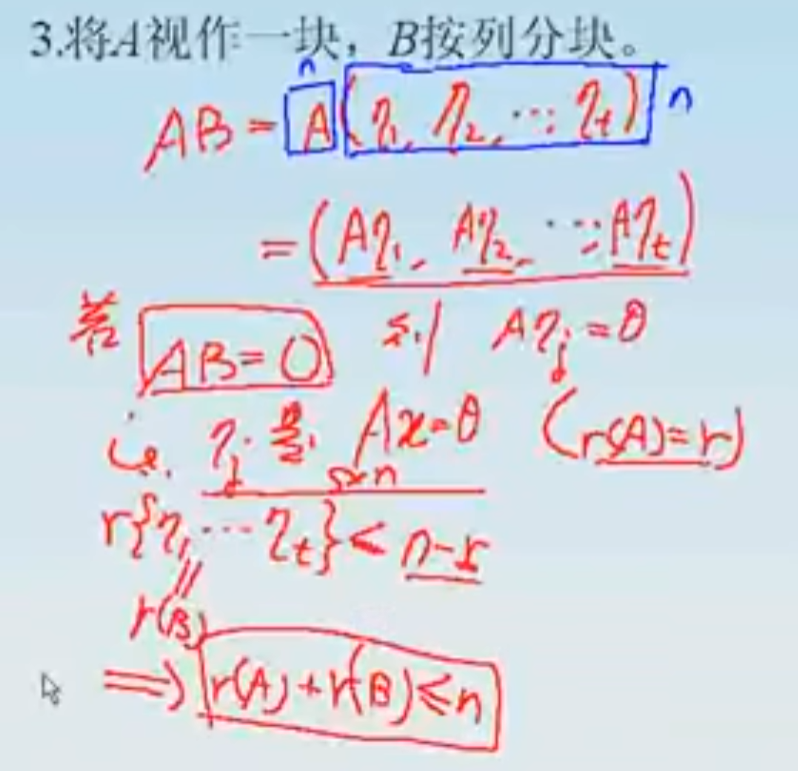 3.将A视作一块，B按列分块。
n
AB = A(η₁, η₂, ⋯, ηₜ) n
= (Aη₁, Aη₂, ⋯, Aηₜ)
若 AB=O 则 Aηⱼ=θ
i.e. ηⱼ是 Ax=θ (r(A)=r)
s×n
r{η₁ ⋯ ηₜ} ≤ n-r
r(B)
⟹ r(A)+r(B)≤n